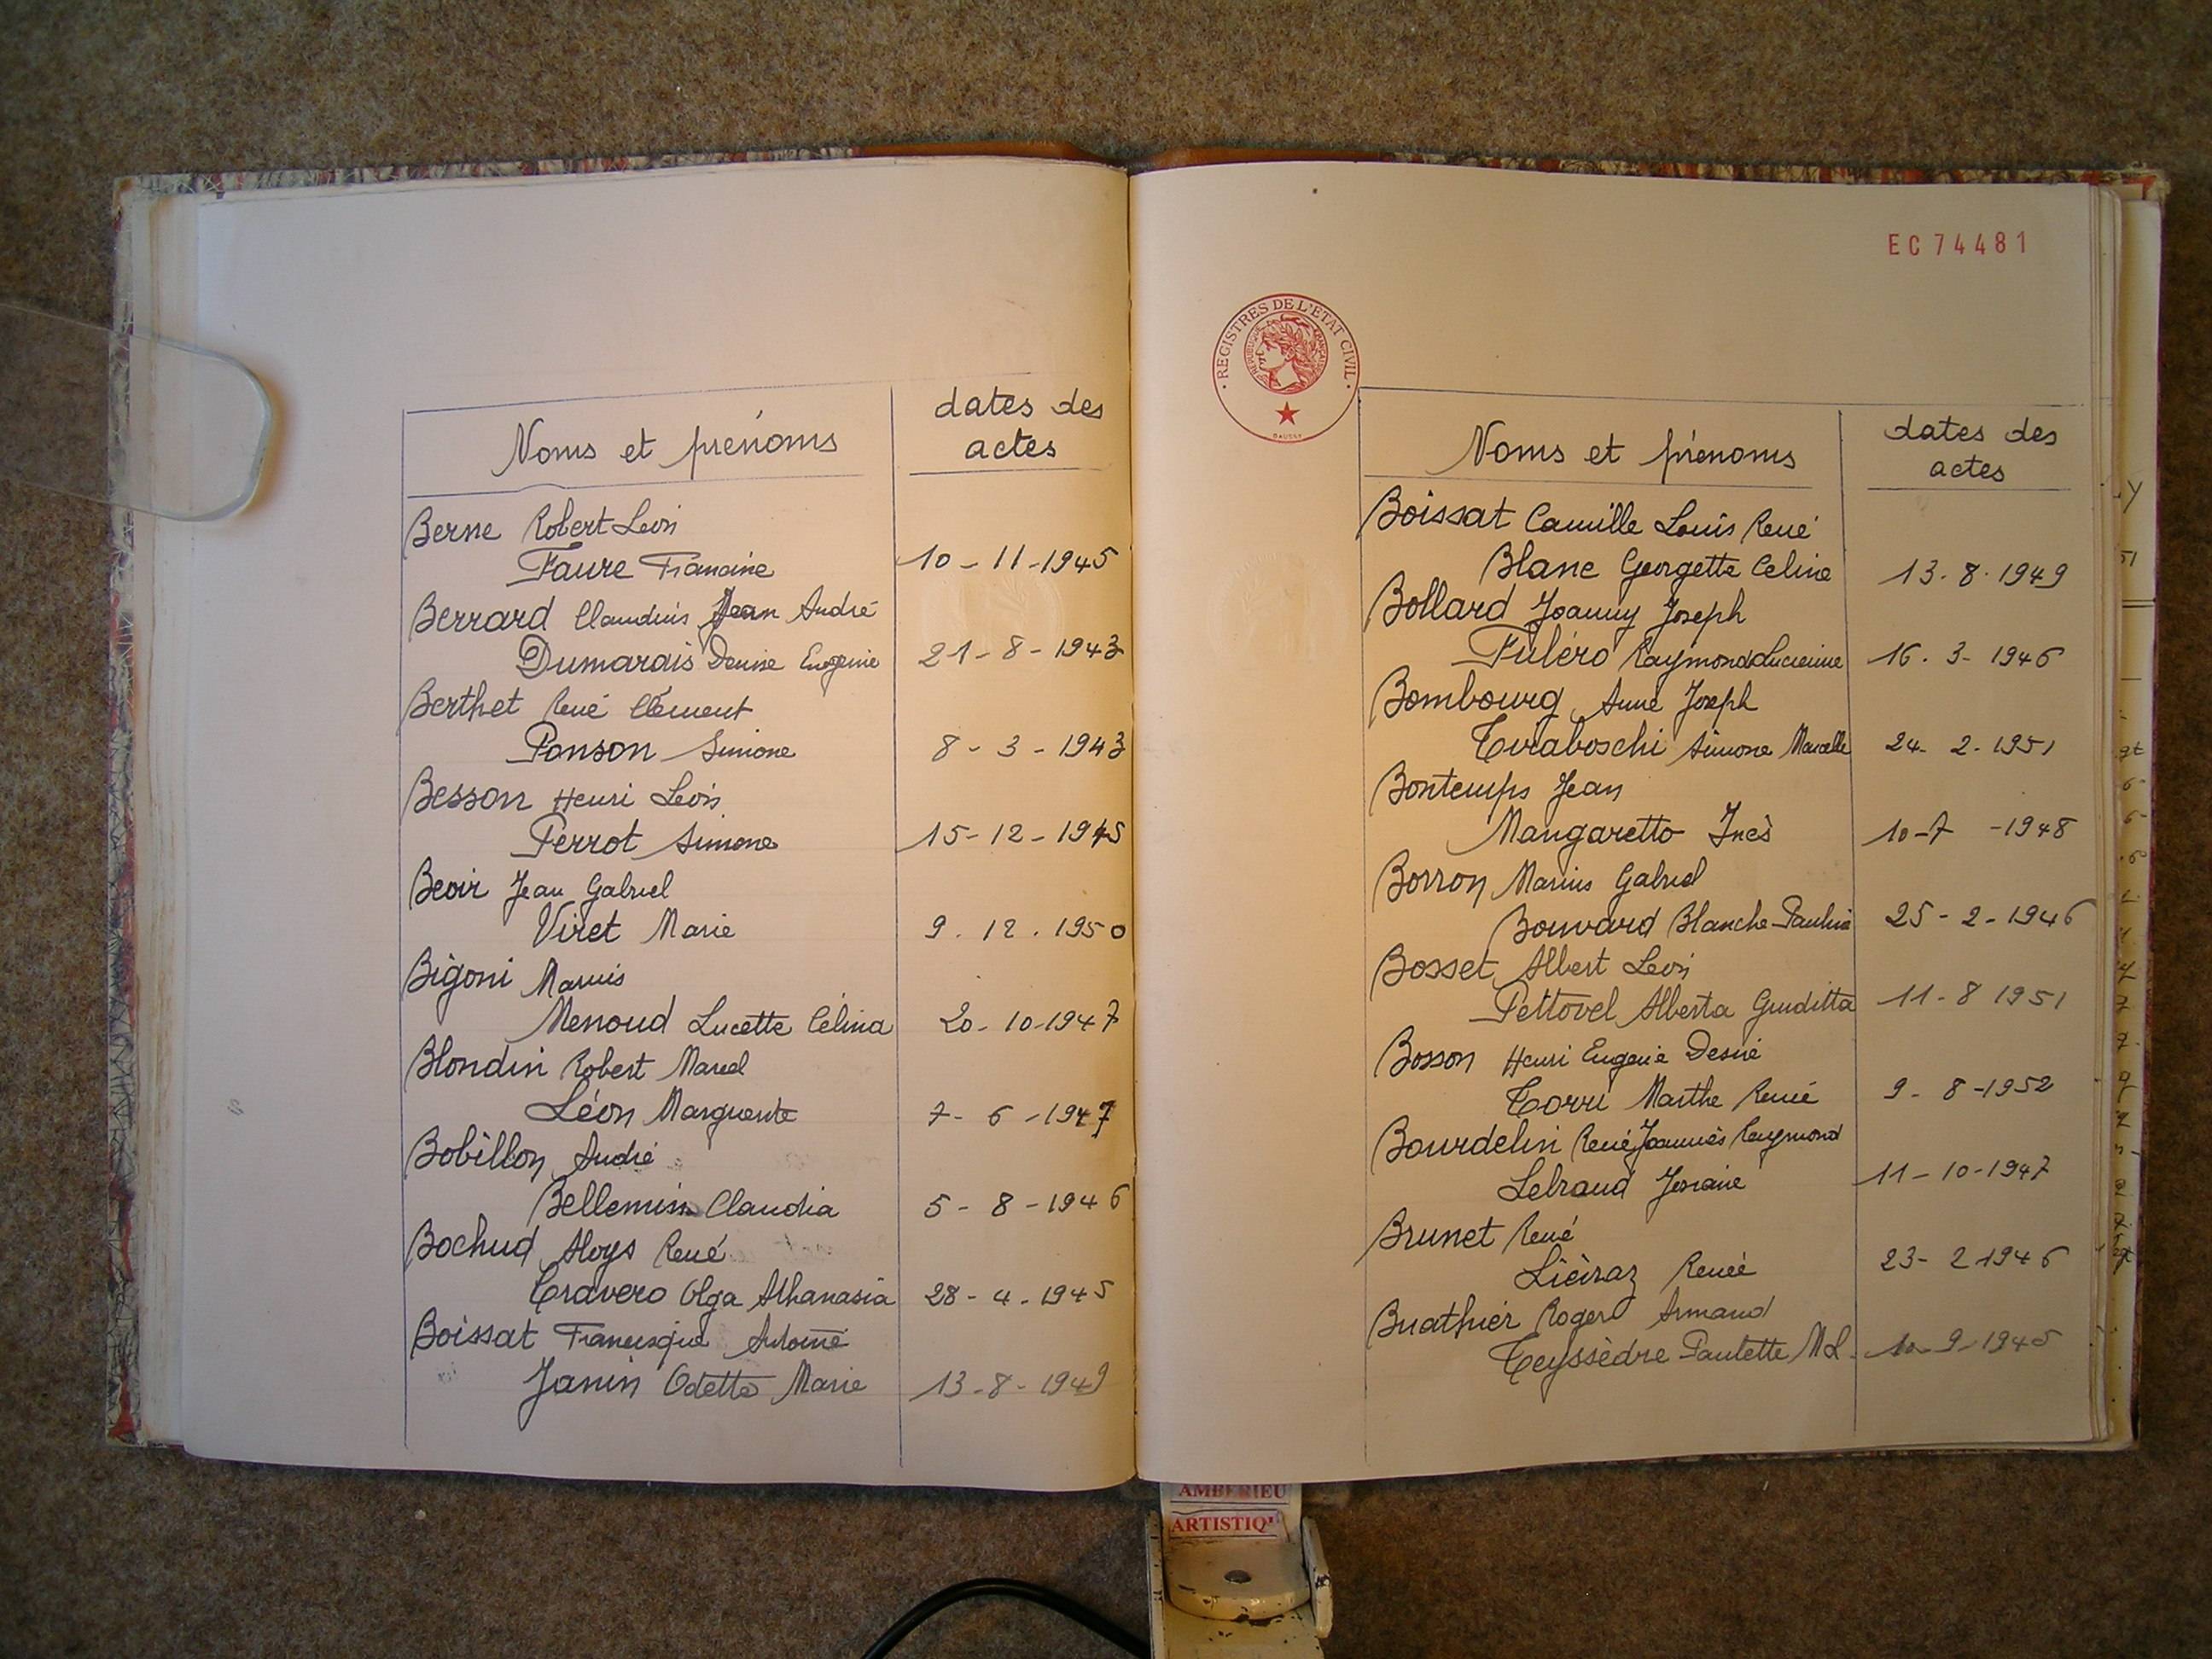 Noms et prénoms
dates des
actes
Berne Robert Léon
Faure Francine 10-11-1945
Berrard Claudius Jean André
Dumarais Denise Eugénie 21-8-1943
Berthet René Clément
Ponson Simone 8-3-1943
Besson Henri Léon
Perrot Simone 15-12-1945
Jean Gabriel
Viret Marie 9.12.1950
Bigoni Marius
Menoud Lucette Célina 20-10-1947
Blondin Robert Marcel
Léon Marguerite 7-6-1947
Bobillon André
Bellemin Claudia 5-8-1946
Bochud Aloys René
Cravero Olga Athanasia 28-4-1945
Boissat Francisque Antoine
Janin Odette Marie 13-8-1949
EC 74481
REGISTRES DE L'ETAT CIVIL
REPUBLIQUE FRANÇAISE
Noms et prénoms
dates des
actes
Boissat Camille Louis René
Blanc Georgette Celine 13.8.1949
Bollard Joanny Joseph
Fuléro Raymonde Lucienne 16.3-1946
Bombourg Aimé Joseph
Tiraboschi Simone Marcelle 24-2-1951
Bontemps Jean
Mangaretto Inès 10-7-1948
Borron Marius Gabriel
Bouvard Blanche Pauline 25-2-1946
Bosset Albert Léon
Pettovel Alberta Giuditta 11-8 1951
Bosson Henri Eugene Desiré
Torri Marthe Renée 9-8-1952
Bourdelin René Joannès Raymond
Lebraud Josiane 11-10-1947
Brunet René
Liéiraz Renée 23-2 1946
Buathier Roger Armand
Teyssèdre Paulette M L. 10-9-1945
AMBERIEU
ARTISTIQ